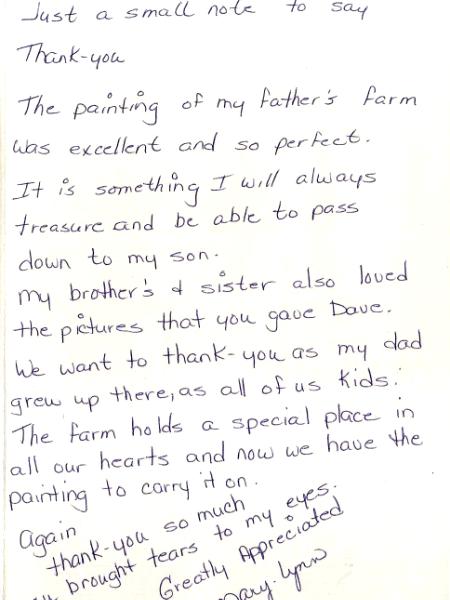 Just a small note to say
Thank-you
The painting of my father's farm
was excellent and so perfect.
It is something I will always
treasure and be able to pass
down to my son.
My brother's & sister also loved
the pictures that you gave Dave.
We want to thank-you as my dad
grew up there, as all of us kids.
The farm holds a special place in
all our hearts and now we have the
painting to carry it on.
Again
thank-you so much
brought tears to my eyes.
Greatly Appreciated
Mary-Lynn